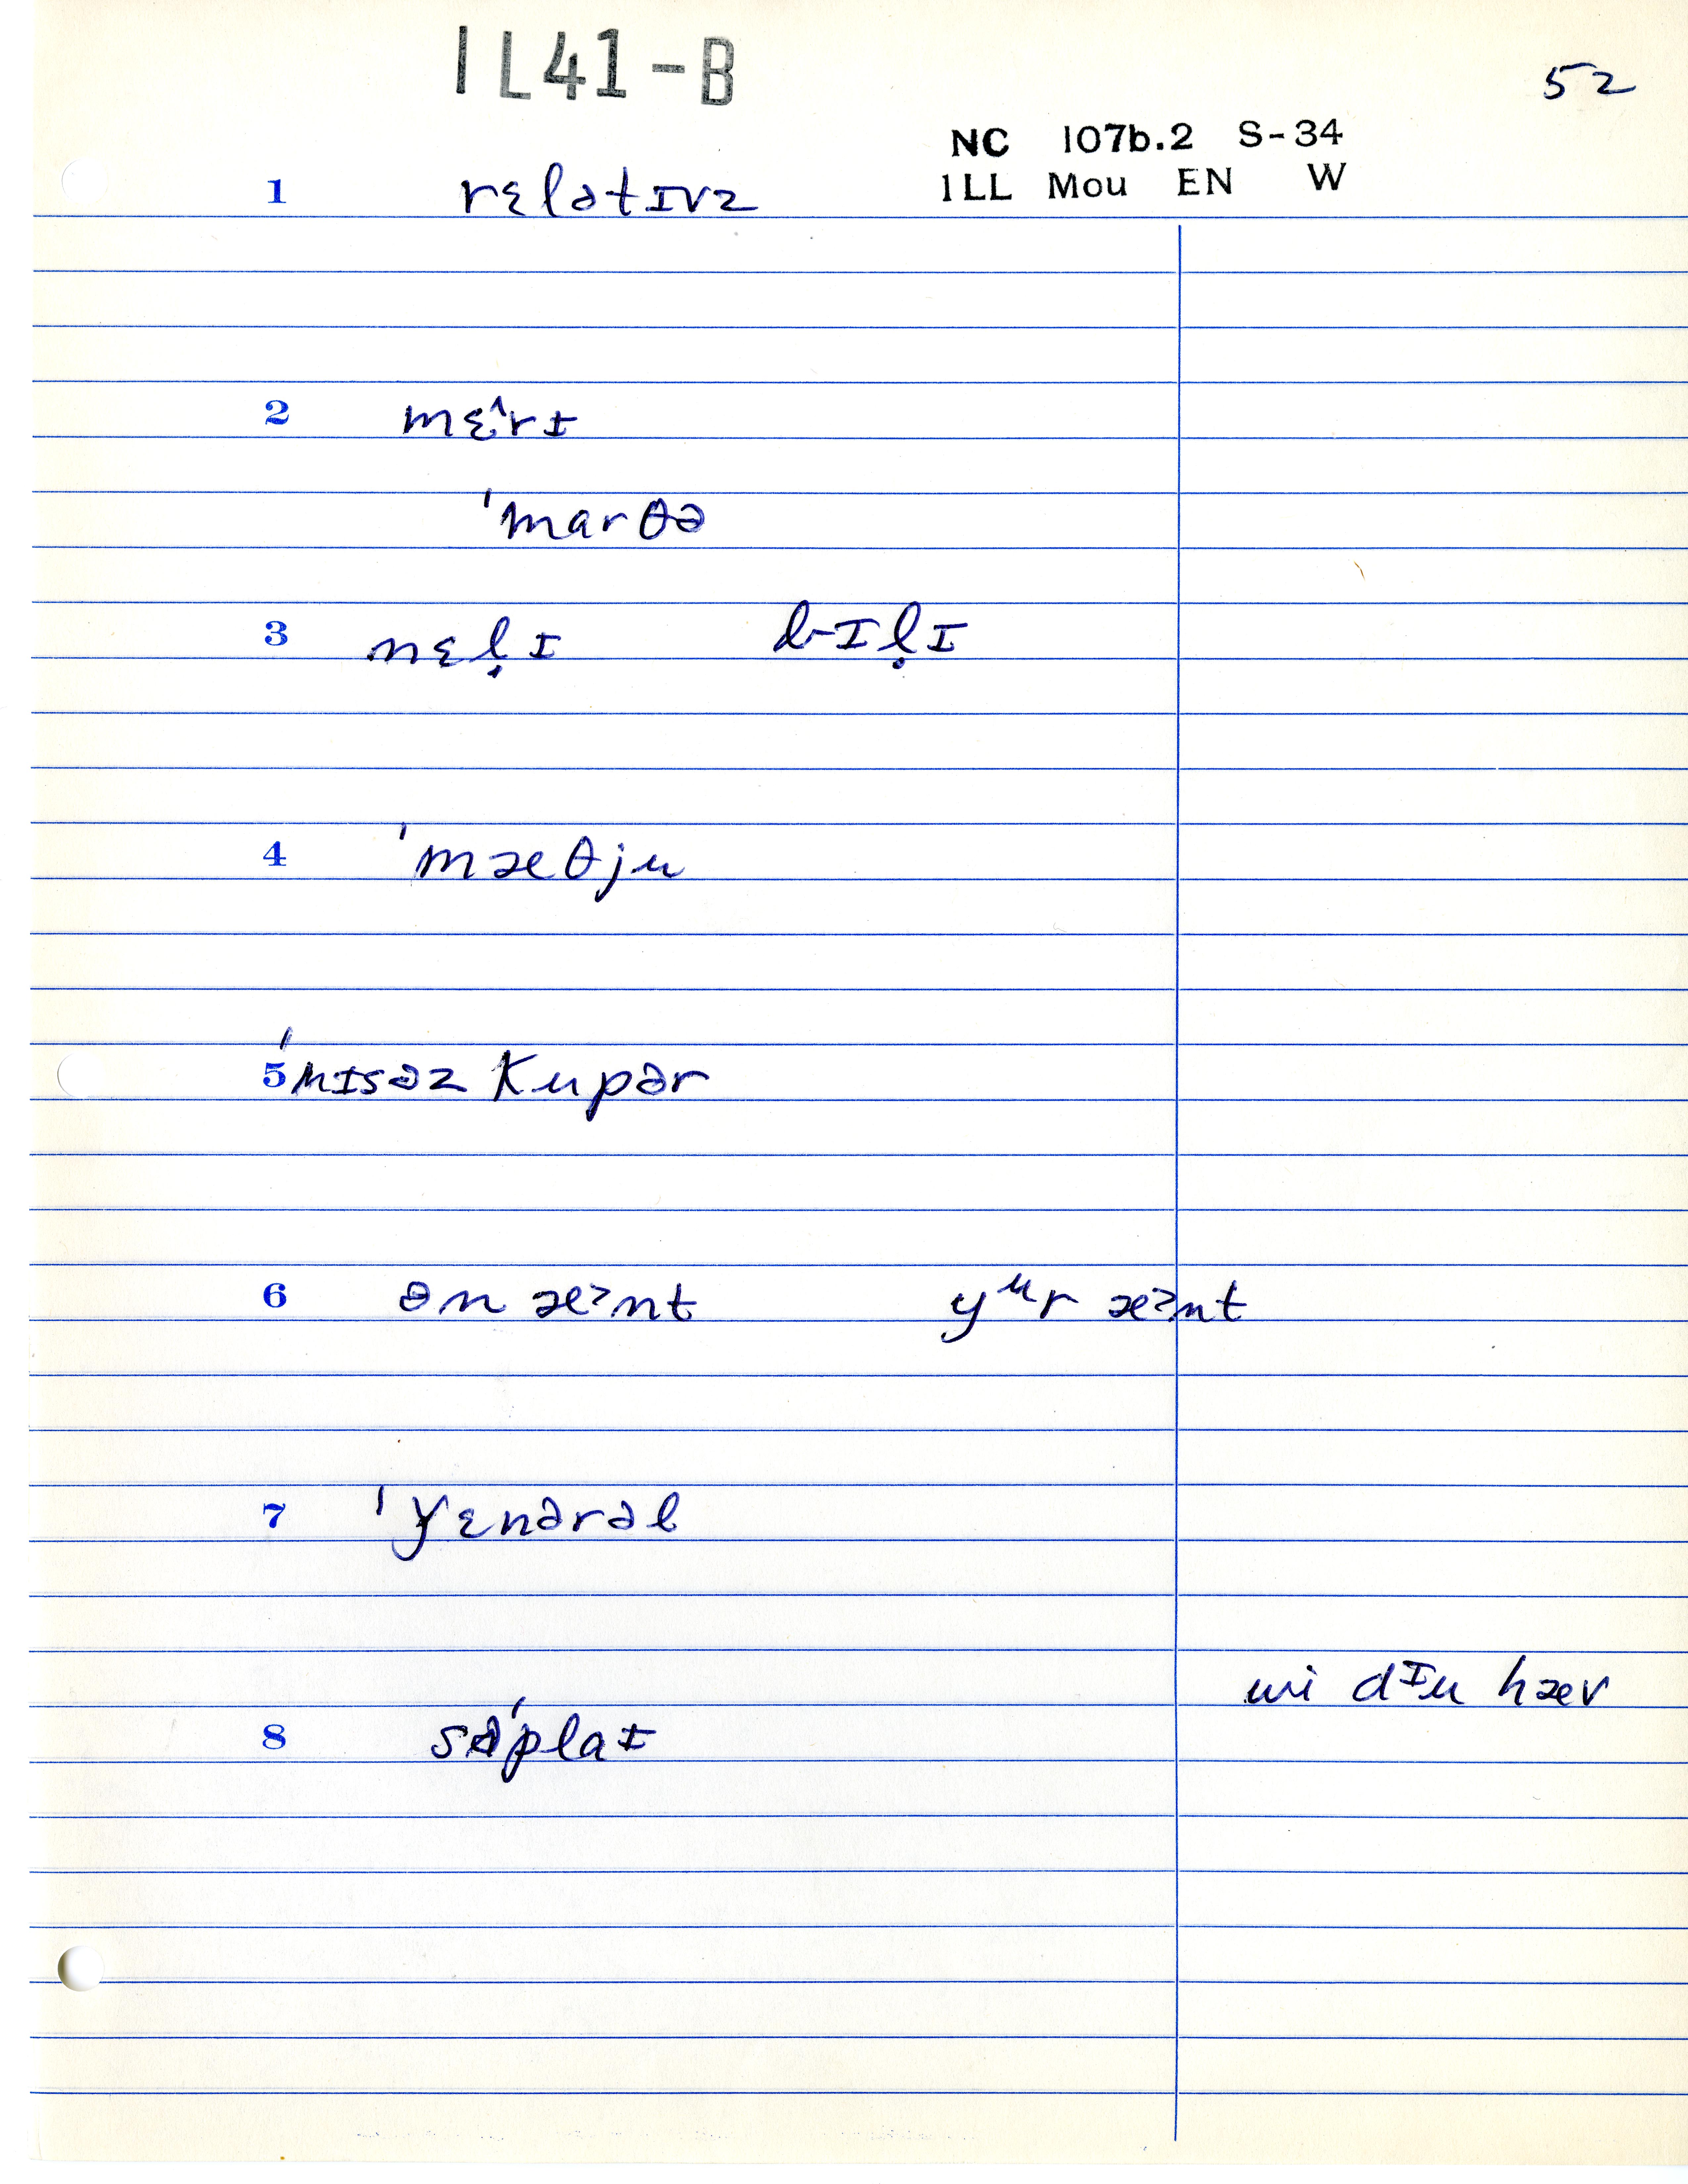 IL41-B
52
NC 107b.2 S-34
ILL Mou EN W
1 rɛlətɪvz
2 mɛ^rɪ
ˈmarθə
3 nɛḷɪ bɪḷɪ
4 ˈmæθju
5 ˈmɪsəz Kupər
6 ən æ>nt yᵘr æ>nt
7 ˈɣɛnərəl
wi dᶦu hæv
8 səˈplaɪ